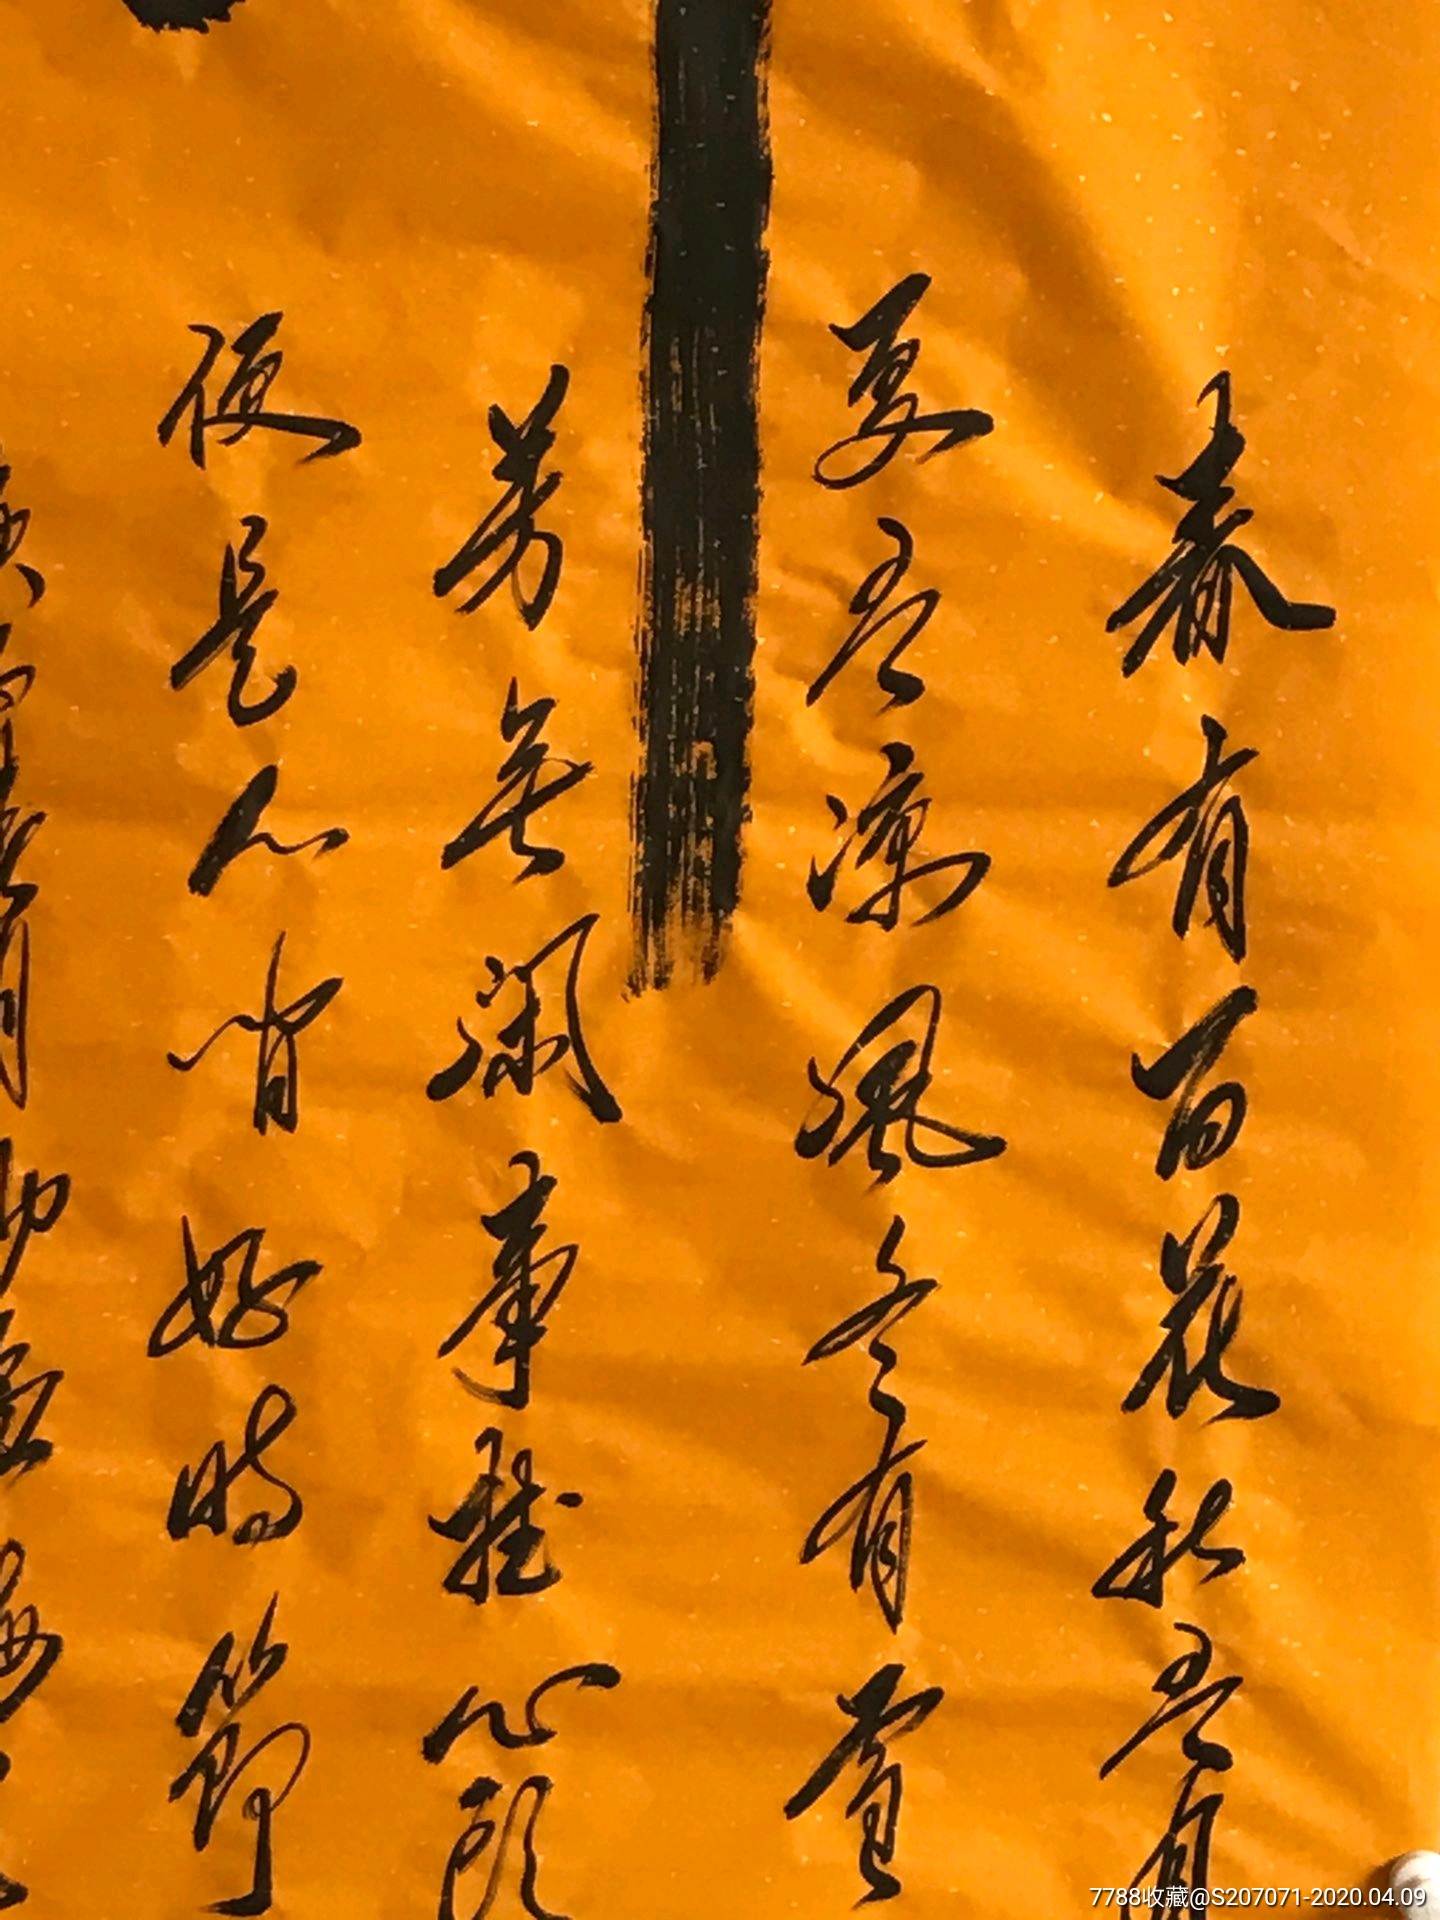 春有百花秋有月
夏有涼風冬有雪
若無閑事挂心頭
便是人間好時節
7788收藏@S207071-2020.04.09